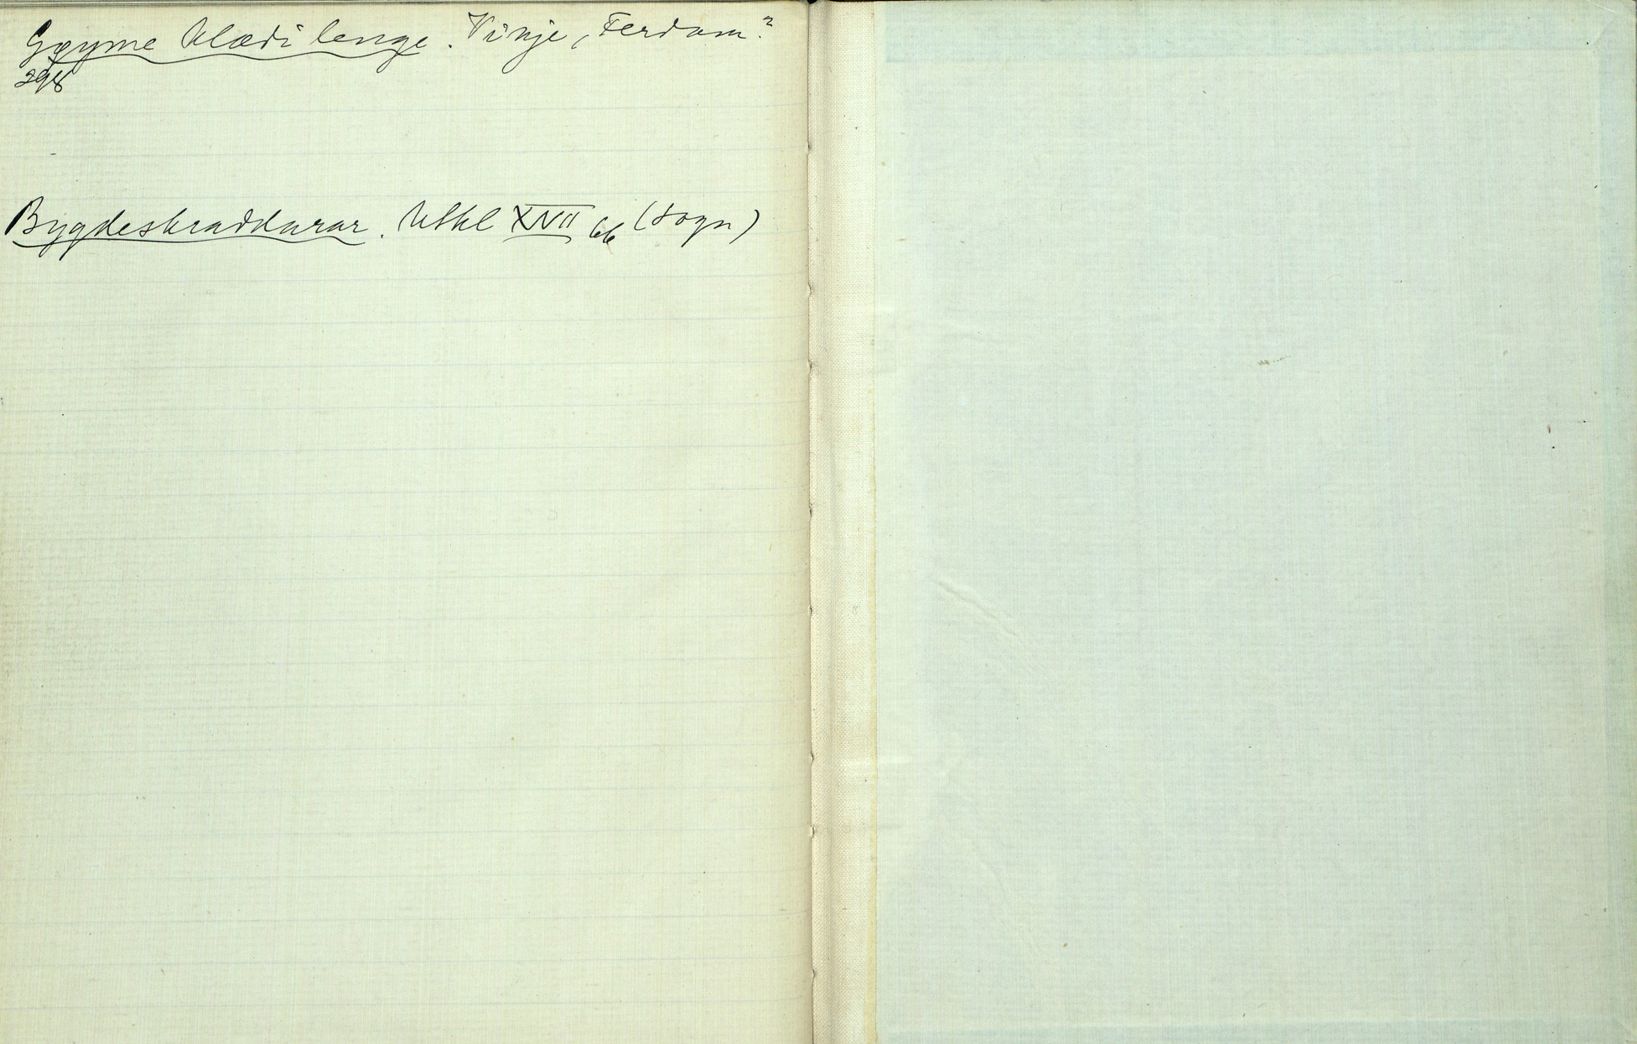 Gøyme klædi lenge. Vinje, Ferdam.²
298
Bygdeskraddarar. NFL XVII 66 (Sogn)